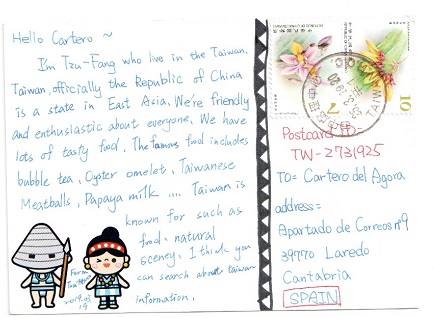 Hello Cartero ~
I'm Tzu-Fang who live in the Taiwan.
Taiwan, officially the Republic of China
is a state in East Asia. We're friendly
and enthusiastic about everyone. We have
lots of tasty food. The famous food includes
bubble tea, Oyster omelet, Taiwanese
Meatballs, Papaya milk .... Taiwan is
known for such as
food, natural
scenery. I think you
can search about taiwan
information.
From
2019.03
19
7
10
TAIWAN
Postcard ID=
TW-2731925
TO= Cartero del Agora
address=
Apartado de Correos nº9
39770 Laredo
Cantabria
SPAIN